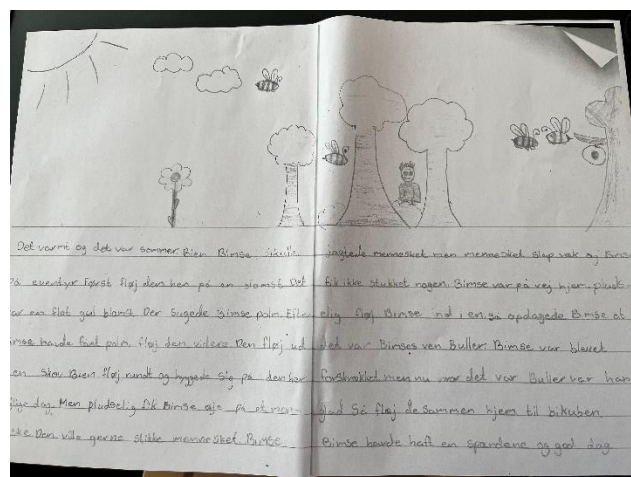 Det varmt og det var sommer. Bien Bimse
på eventyr Først fløj den hen på en blomst Det
var en flot gul blomst Der sugede Bimse poln. Efter
Bimse havde faet poln fløj den videre Den fløj ud
en skov Bien fløj rundt og hyggede sig på den her
dag. Men pludselig fik Bimse øje på et men-
ske Den ville gerne stikke mennesket Bimse
jagtede mennesket men mennesket slap væk og Bimse
fik ikke stukket nogen. Bimse var på vej hjem. pluds-
elig fløj Bimse ind i en så opdagede Bimse at
det var Bimses ven Buller. Bimse var blevet
forskrækket men nu var det var Buller var han
glad Så fløj de sammen hjem til bikuben.
Bimse havde haft en spændene og god dag